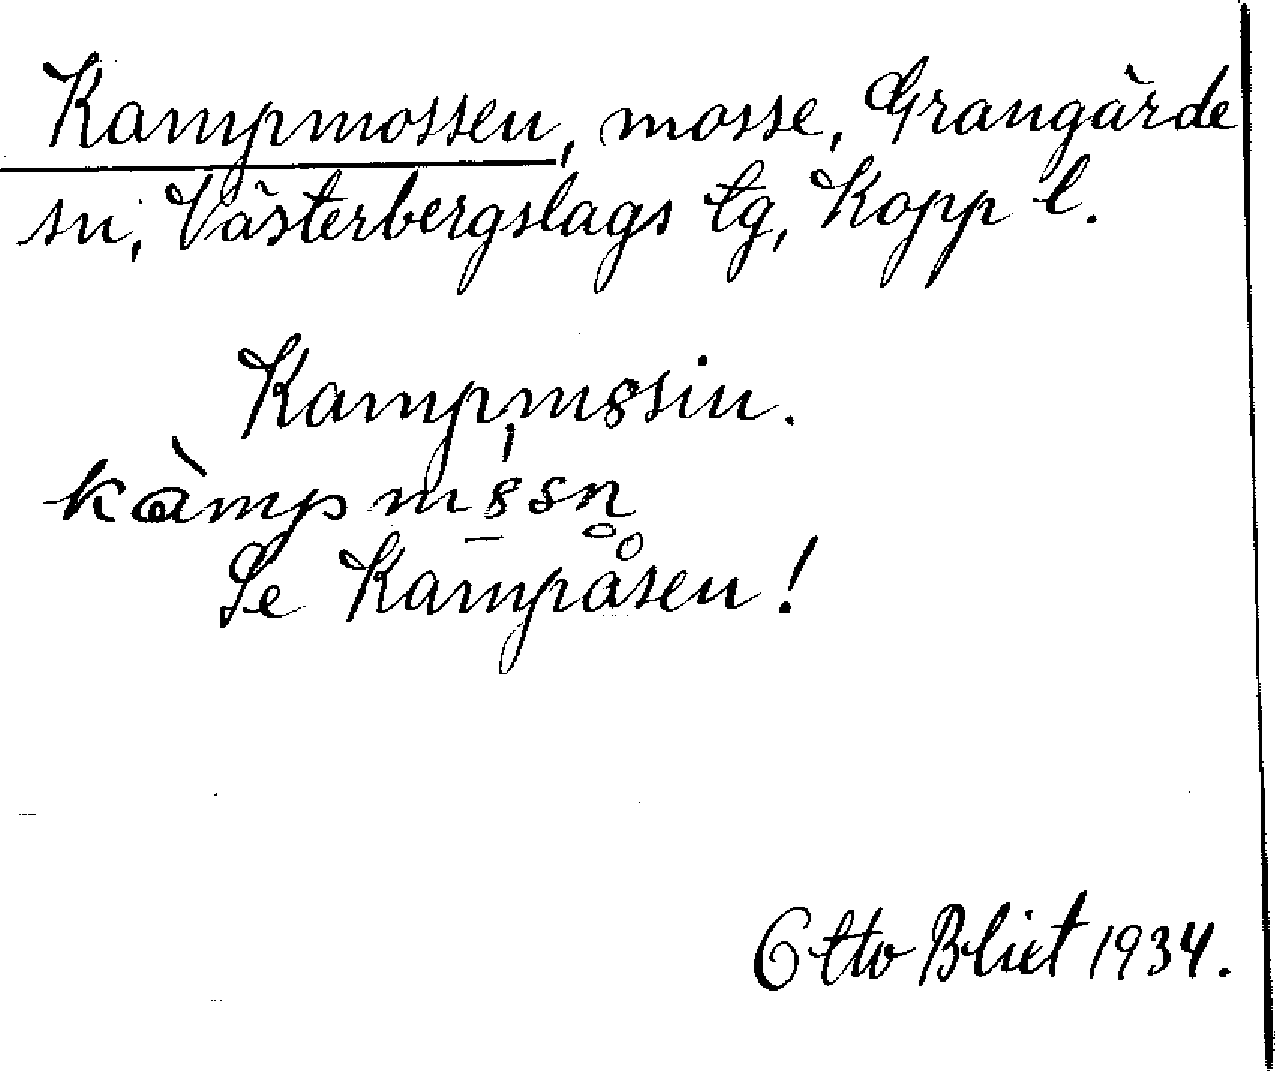 Kampmossen, mosse, Grangärde
sn, Västerbergslags tg, Kopp l.
Kampm8sin.
kàmpm8sn̥
Se Kampåsen!
Otto Blixt 1934.